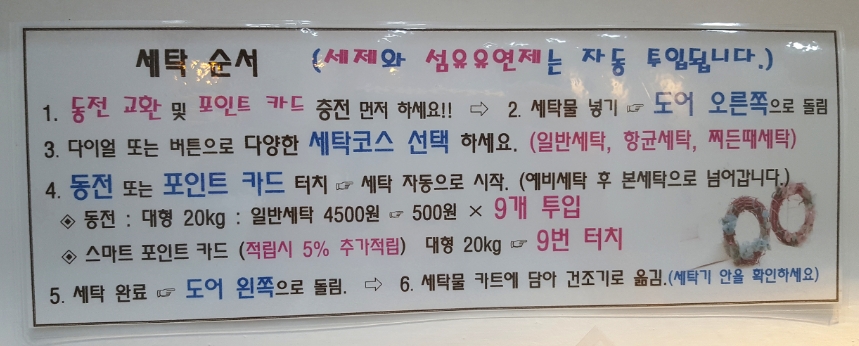 세탁 순서 (세제와 섬유유연제는 자동 투입됩니다.)
1. 동전 교환 및 포인트 카드 충전 먼저 하세요!! ⇨ 2. 세탁물 넣기 ☞ 도어 오른쪽으로 돌림
3. 다이얼 또는 버튼으로 다양한 세탁코스 선택 하세요. (일반세탁, 항균세탁, 찌든때세탁)
4. 동전 또는 포인트 카드 터치 ☞ 세탁 자동으로 시작. (예비세탁 후 본세탁으로 넘어갑니다.)
◈ 동전 : 대형 20kg : 일반세탁 4500원 ☞ 500원 × 9개 투입
◈ 스마트 포인트 카드 (적립시 5% 추가적립) 대형 20kg ☞ 9번 터치
5. 세탁 완료 ☞ 도어 왼쪽으로 돌림. ⇨ 6. 세탁물 카트에 담아 건조기로 옮김.(세탁기 안을 확인하세요)